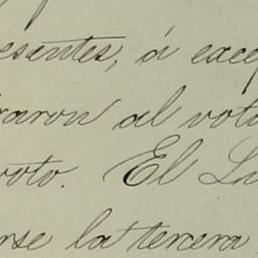 esentes, á excep
raron al vota
voto. El
rse la tercera